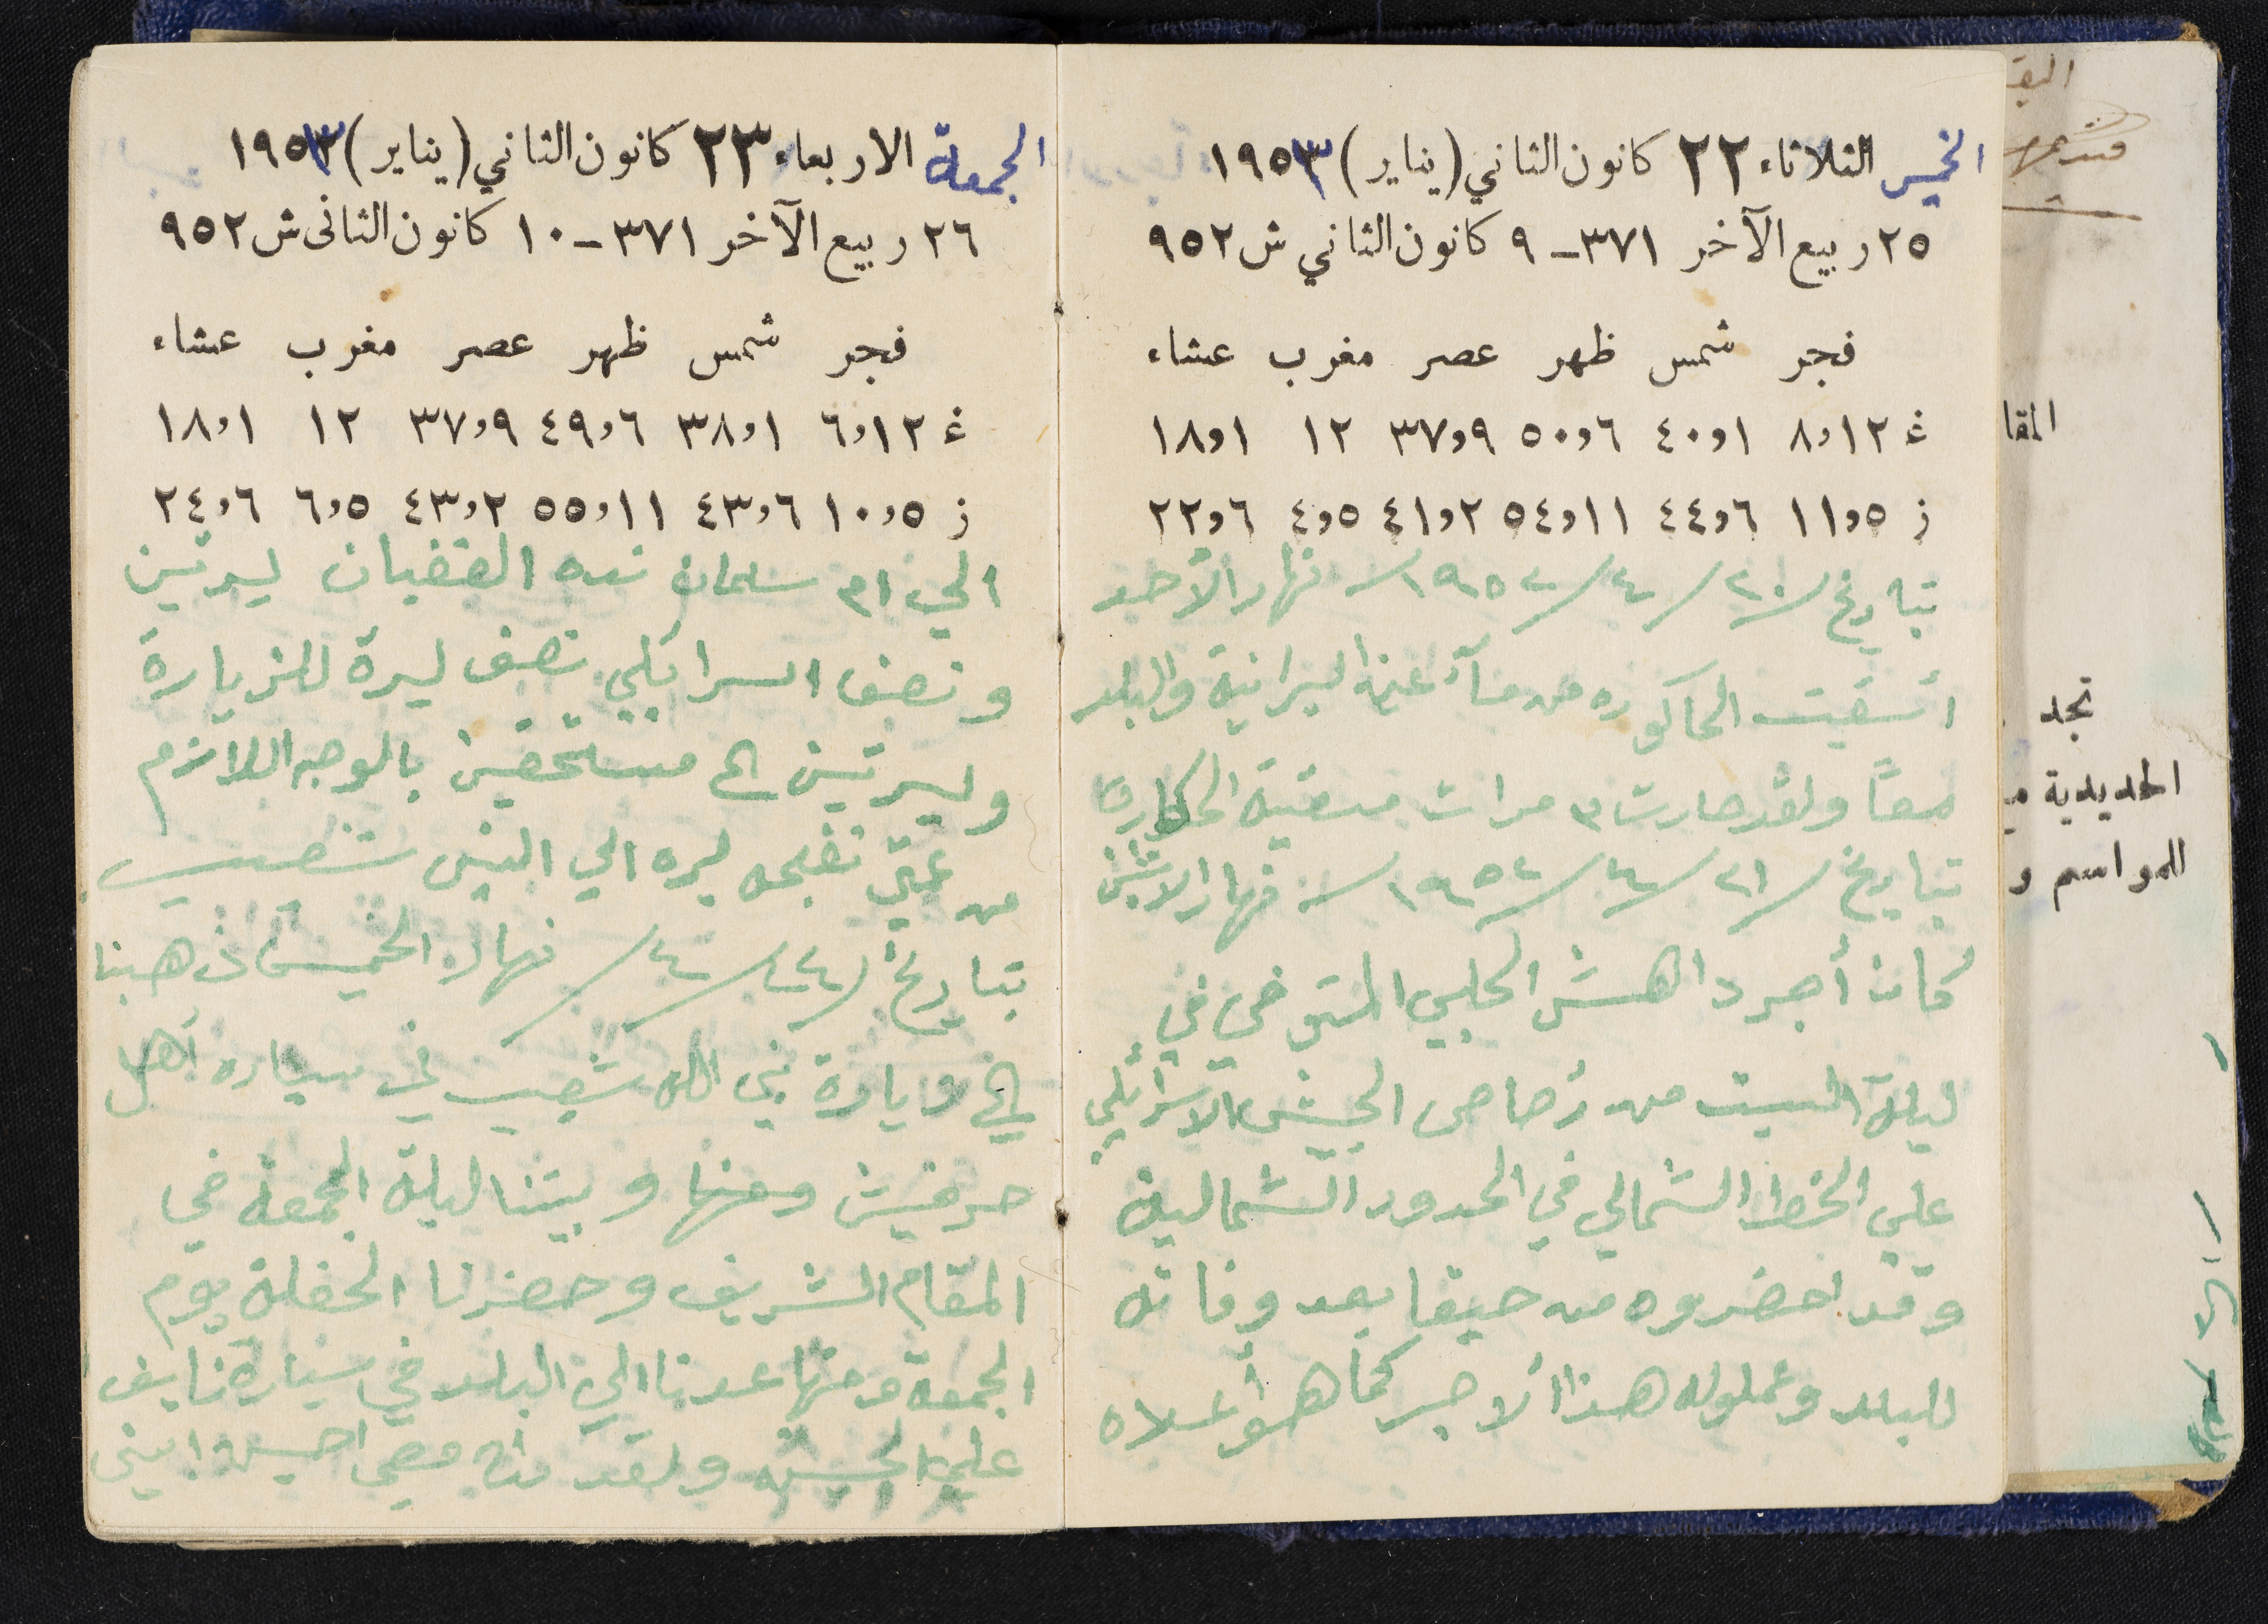 الخميس الثلاثاء ٢٢ كانون الثاني (يناير) ١٩٥٣
٢٥ ربيع الآخر ٣٧١ - ٩ كانون الثاني ش ٩٥٢
فجر شمس ظهر عصر مغرب عشاء
غ ١٢و٨ ١و٤٠ ٦و٥٠ ٩و٣٧ ١٢ ١و١٨
ز ٥و١١ ٦و٤٤ ١١و٥٤ ٢و٤١ ٥و٤ ٦و٢٢
بتاريخ ٢٠/٤/١٩٥٢ نهار الأحد
أسقيت الحاكوره من مآء عين البرانية والبلد
معاً ولقد صارت ٣ مرات مسقية الحاكورة
بتاريخ ٢١/٤/١٩٥٢ نهار الاثنين
كان أجر داهش الحلبي المتوفي في
ليلة السبت من رصاص الجيش الاسرائيلي
علي الخط الشمالي في الحدود الشمالية
وقد احضروه من حيفا بعد وفاته
للبلد وعملوله هذا الاجر كما هو أعلاه
الجمعة الاربعاء ٢٣ كانون الثاني (يناير) ١٩٥٣
٢٦ ربيع الآخر ٣٧١ - ١٠ كانون الثاني ش ٩٥٢
فجر شمس ظهر عصر مغرب عشاء
غ ١٢و٦ ١و٣٨ ٦و٤٩ ٩و٣٧ ١٢ ١و١٨
ز ٥و١٠ ٦و٤٣ ١١و٥٥ ٢و٤٣ ٥و٦ ٦و٢٤
الي ام سلمان القضبان ليرتين
ونصف اسرائيلي نصف ليرة للزيارة
وليرتين الى مستحقين بالوجه اللازم
من عمتي ليره الي النبي شعيب
بتاريخ ٢٤/٤/ نهار الخميس ذهبنا
الي زيارة نبي الله شعيب في سياره أهل
حرفيش ومنها وبيتنا ليلة الجمعة في
المقام الشريف وحضرنا الحفلة يوم
الجمعة ومنها عدنا الي البلد في سيارة نايف
علي الحسين ولقد كان معي احسن ابني
البق
المقا
تجد
الحديدية مـ
للمواسم و